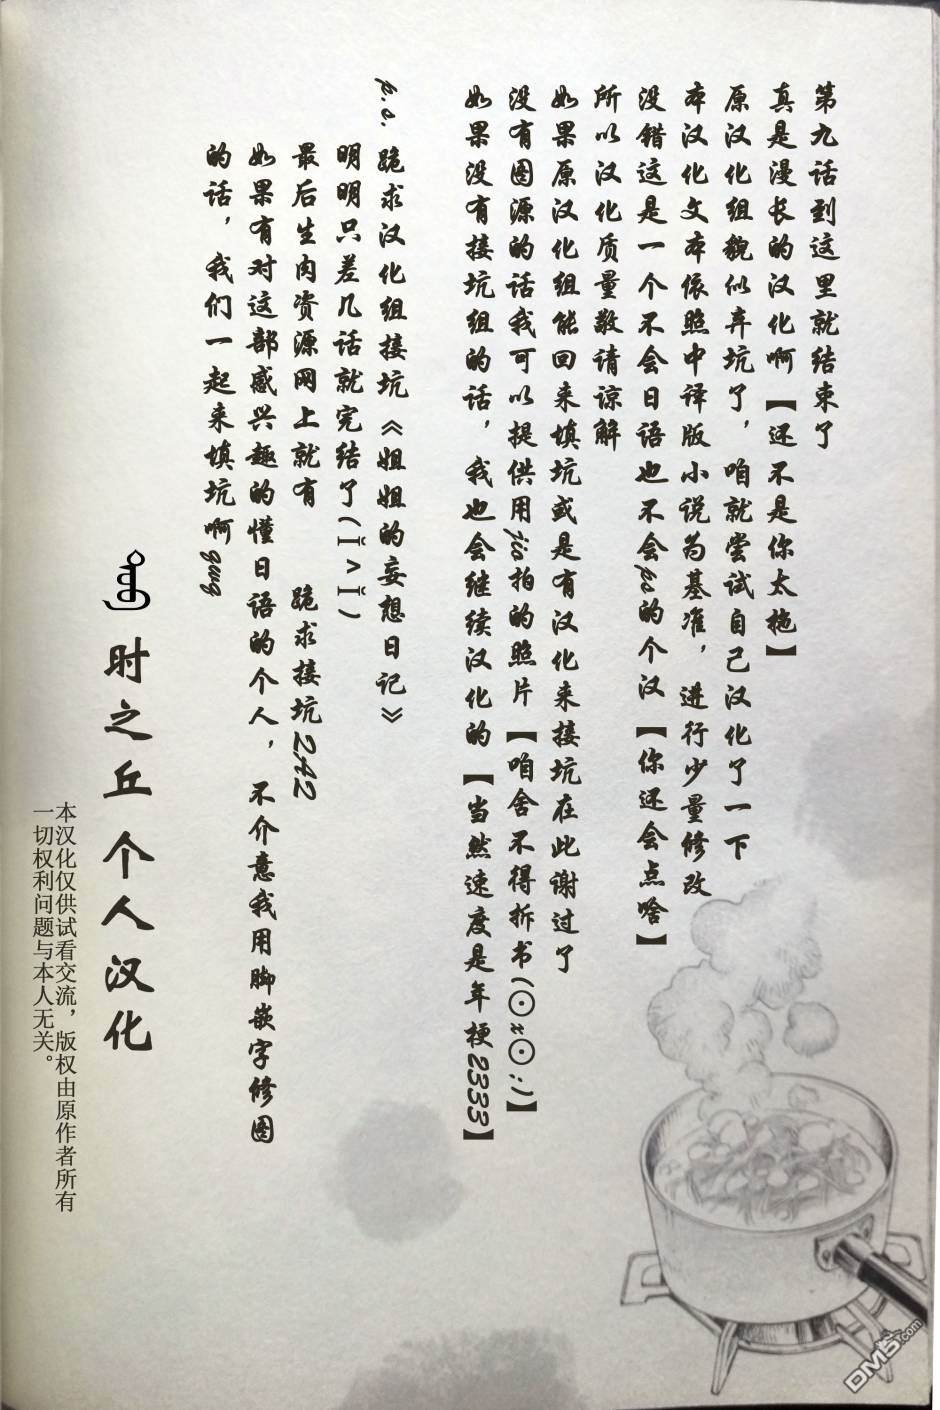 第九话到这里就结束了
真是漫长的汉化啊【还不是你太拖】
原汉化组貌似弃坑了，咱就尝试自己汉化了一下
本汉化文本依照中译版小说为基准，进行少量修改
没错这是一个不会日语也不会ps的个汉【你还会点啥】
所以汉化质量敬请谅解
如果原汉化组能回来填坑或是有汉化来接坑在此谢过了
没有图源的话我可以提供用jio拍的照片【咱舍不得拆书(⊙x⊙;)】
如果没有接坑组的话，我也会继续汉化的【当然速度是年梗2333】
p.s.跪求汉化组接坑《姐姐的妄想日记》
明明只差几话就完结了(ＩˇˆˇＩ)
最后生肉资源网上就有 跪求接坑QAQ
如果有对这部感兴趣的懂日语的个人，不介意我用脚嵌字修图
的话，我们一起来填坑啊gug
时之丘个人汉化
本汉化仅供试看交流，版权由原作者所有
一切权利问题与本人无关。
DM5.com